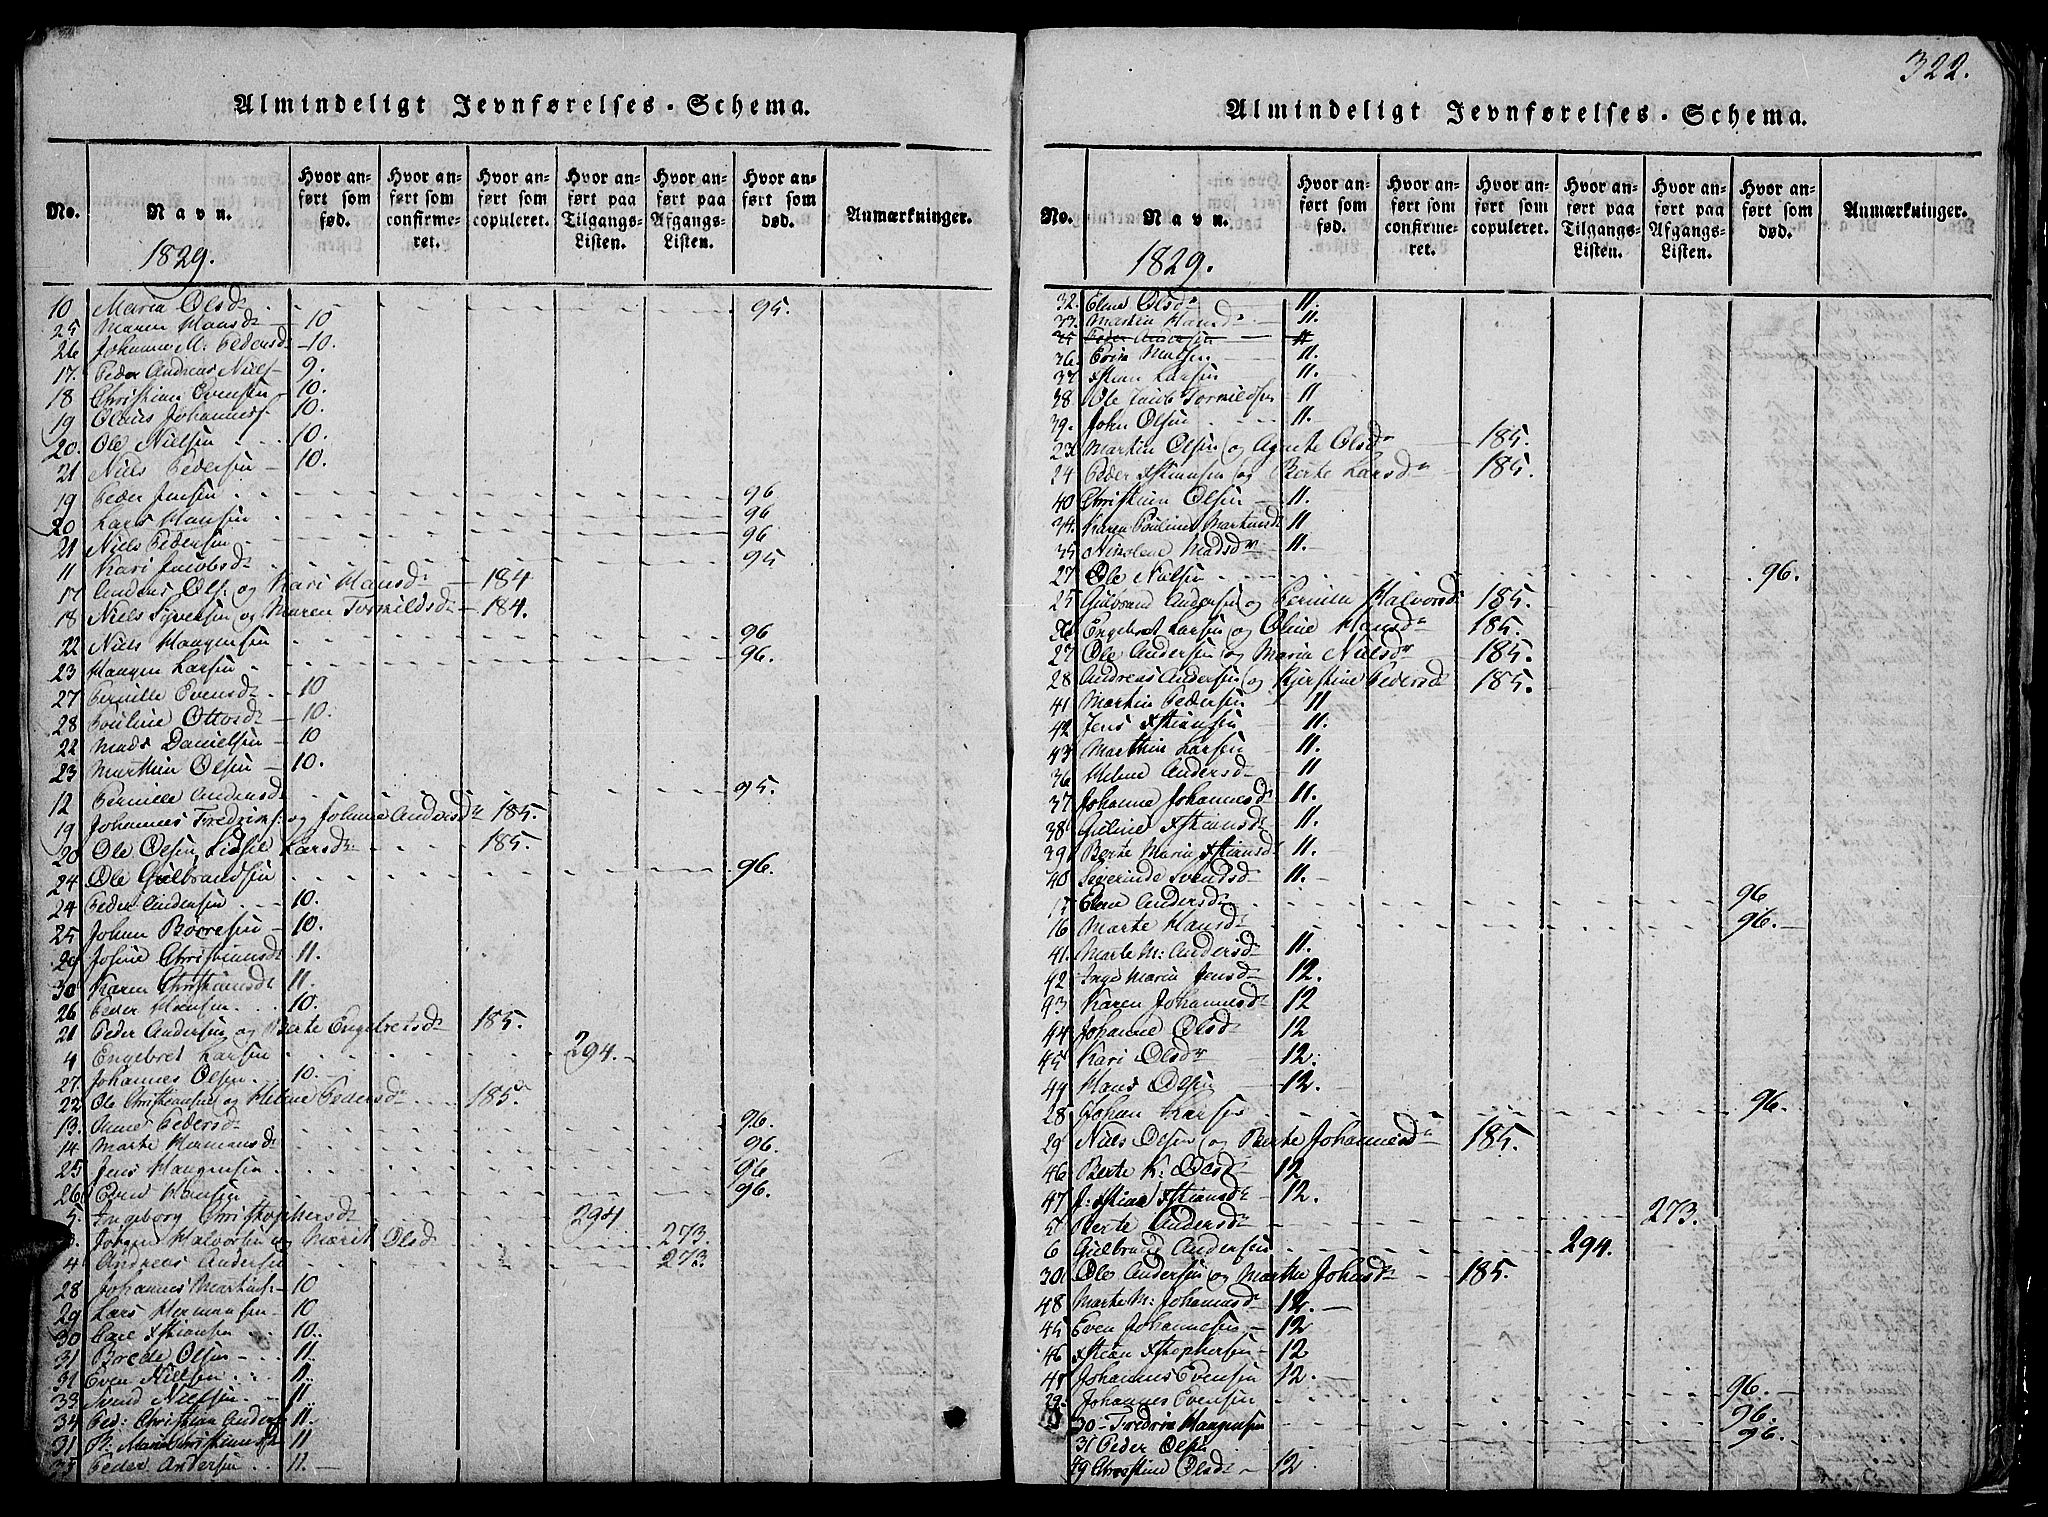 322.
Almindeligt Jevnførelses-Schema.
No. Navn. Hvor anført som fød. Hvor anført som confirmeret. Hvor anført som copuleret. Hvor anført paa Tilgangs-Listen. Hvor anført paa Afgangs-Listen. Hvor anført som død. Anmærkninger.
1829.
10 Maria Olsdr 95.
25 Maren Hansdr 10
26 Johanne M: Pedersdr 10.
17. Peder Andreas Niels 9.
18 Christian Evensen 10.
19 Olaus Johannes 10.
20. Ole Nielsen 10.
21 Niels Pedersen 10.
19 Peder Jensen 96
20 Lars Hansen 96
21 Niels Pedersen 96
11 Kari Jacobsdr 95
17 Anders Ols: og Kari Hansdr 184
18 Niels Syversen og Maren Tormildsdr 184.
22 Niels Haagensen 96
23 Haagen Larsen 96.
27 Pernille Evensdr 10
28 Pouline Ottosdr 10.
22 Mads Danielsen 10
23 Marthin Olsen 10.
12 Pernille Andersdr 95.
19 Johannes Fredrics: og Johanne Andersdr 185.
20 Ole Olsen, Sidsel Larsdr 185.
24 Ole Gulbrandsen 96.
24 Peder Andersen 10.
25 Johan Børresen 10.
29 Josine Christiansdr 11.
30 Karen Christiansdr 11.
26 Peder Hansen 10.
21 Peder Andersen og Berte Engebretsdr 185.
4 Engebret Larsen 294.
27. Johannes Olsen 10.
22 Ole Christiansen og Helene Pedersdr 185.
13. Anne Pedersdr 96.
14 Marte Hermansdr 96.
25 Jens Haagensen 96
26. Even Hansen 96.
5. Ingeborg Christophersdr 294
3. Jørgen Halvorsen og Marit Olsd 273.
4 Andreas Andersen 273
28 Johannes Martins: 10
29 Lars Hermansen 10
30 Carl Xstiansen 10.
31 Brede Olsen 11
31 Even Nielsen 11.
33 Svend Nielsen 11
34 Ped: Christian Anders 11.
31 B: Marie Christiansdr 11
35 Peder Andersen 11.
Almindeligt Jevnførelses-Schema.
No. Navn. Hvor anført som fød. Hvor anført som confirmeret. Hvor anført som copuleret. Hvor anført paa Tilgangs-Listen. Hvor anført paa Afgangs-Listen. Hvor anført som død. Anmærkninger.
1829.
32. Elene Olsdr 11.
33. Marthin Hansdr 11.
35 Peder Andersen 11
36. Even Madsen 11.
37 Xstian Larsen 11.
38 Ole Jacob Tormildsen 11
39. John Olsen 11.
23 Martin Olsen og Agnete Olsdr 185.
24 Peder Xstiansen og Berte Larsdr 185.
40 Christian Olsen 11.
34. Karen Pouline Martinsdr 11
35 Nicolene Madsdr 11.
27 Ole Nielsen 96.
25 Gulbrand Andersen og Pernille Halvorsdr 185.
26 Engebret Larsen og Oline Hansdr 185.
27 Ole Andersen og Maria Nielsdr 185.
28 Andreas Andersen og Kjerstine Pedersdr 185.
41 Martin Pedersen 11
42 Jens Xstiansen 11.
43 Marthin Larsen 11.
36 Helene Andersdr 11
37 Johanne Johannesdr 11.
38 Guline Xstiansdr 11.
39 Berte Maria Xstiansdr 11.
40 Severinde Svendsdr 11.
15 Elene Andersdr 96
16 Marte Hansdr 96.
41. Marte M: Andersdr 11.
42 Inge Maria Jensdr 12.
93. Karen Johannesdr 12
44 Johanne Olsdr 12
45 Kari Olsdr 12.
44 Hans Olsen 12.
28 Johan Larsen 96.
29 Niels Olsen og Berte Johannesdr 185.
46 Berte K: Olesdr 12
47 J: Xstine Xstiansdr 12.
5 Berte Andersdr 273.
6 Gulbrand Andersen 294.
30 Ole Andersen og Marthe Johansdr 185.
48 Marte M: Johannesdr 12.
45 Even Johannesen 12
46 Xstian Xstophersen 12
47 Johannes Evensen 12.
29. Johannes Evensen 96.
30 Fredrik Haagensen 96.
31 Peder Olsen 96.
49 Christine Olsdr 12